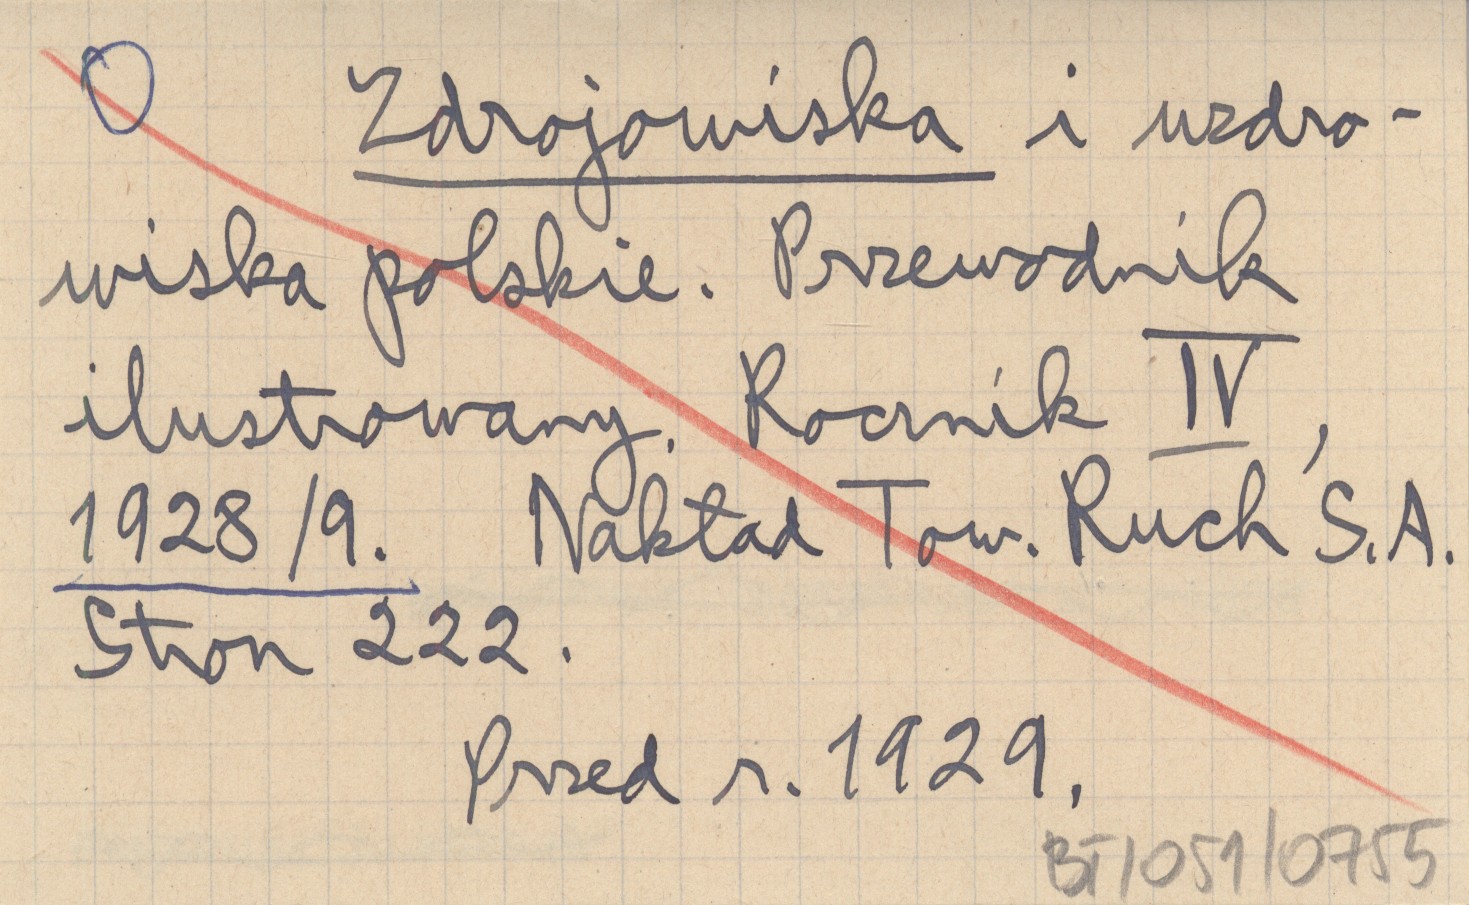 Zdrojowiska i uzdro-
wiska polskie. Przewodnik
ilustrowany. Rocznik IV,
1928/9. Nakład Tow. Ruch S.A.
Stron 222.
Przed r. 1929.
BT/051/0755